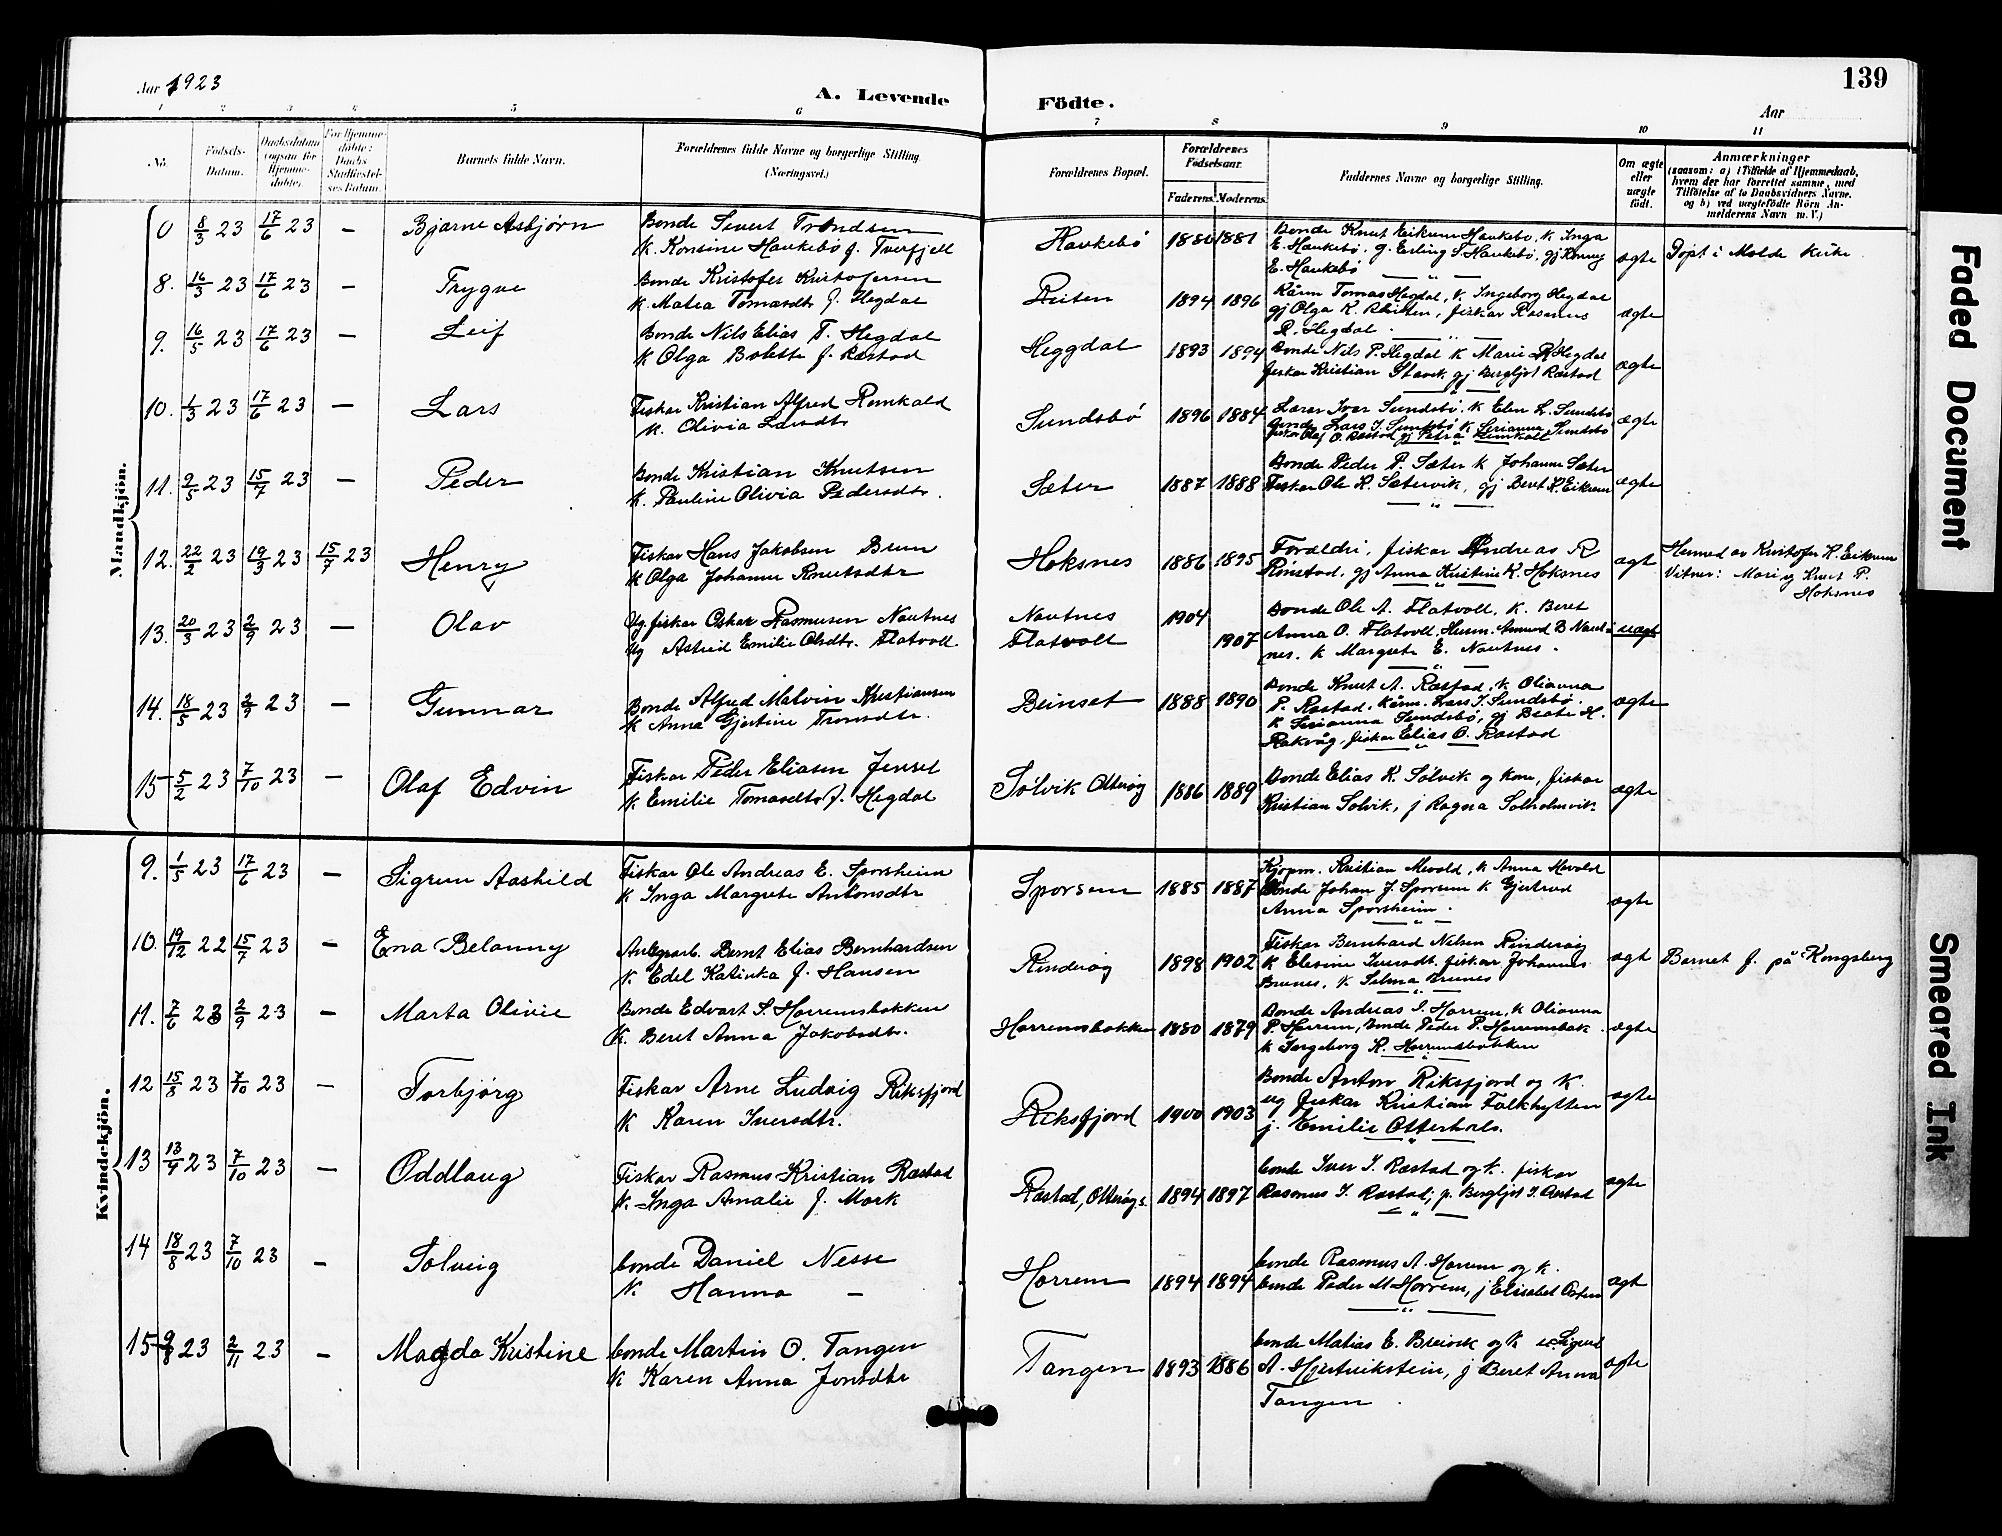 Aar 1923
A. Levende
Födte.
139
Aar
1 2 3 4 5 6 7 8 9 10 11
No.
Födsels-Datum.
Daabsdatum (ogsaa for Hjemmedøbte).
For Hjemmedöbte: Daabs Stadfæstelses Datum.
Barnets fulde Navn.
Forældrenes fulde Navne og borgerlige Stilling. (Næringsvei.)
Forældrenes Bopæl.
Forældrenes Födselsaar.
Faderens. Moderens.
Faddernes Navne og borgerlige Stilling.
Om ægte eller uægte födt.
Anmærkninger
(saasom: a) i Tilfælde af Hjemmedaab,
hvem der har forrettet samme, med
Tilföielse af to Daabsvidners Navne.
og b) ved uægtefödte Börn An-
melderens Navn m. V.)
Mandkjön.
0 8/3 23 17/6 23 — Bjarne Asbjørn
Bonde Sivert Trondsen
K. Konsine Haukebø f. Tverfjell
Haukebø 1886 1881
Bonde Knut Eikrem Haukebø, K Inga
E. Haukebø, g. Erling S. Haukebø, gj Konny
E. Haukebø
ægte
Døpt i Molde kirke.
8. 16/3 23 17/6 23 — Trygve
Bonde Kristofer Kristofersen
K. Matea Tomasdtr f. Hegdal
Reiten 1894 1896
Kårm Tomas Hegdal, K. Ingeborg Hegdal
gj Olga K. Reiten, fiskar Rasmus
R. Hegdal.
ægte
9. 16/5 23 17/6 23 — Leif
Bonde Nils Elias T. Hegdal
K Olga Bolette f. Røstad
Heggdal 1893 1894
Bonde Nils P. Hegdal K Marie R Hegdal
fiskar Kristian Stavik gj Bergljot Røstad
ægte
10. 1/3 23 17/6 23 — Lars
Fiskar Kristian Alfred Remkald
K. Olivia Larsdtr
Sundsbø 1896 1884
Lærar Iver Sundsbø, K Elen L. Sundsbø
Bonde Lars I. Sundsbø K Serianna Sundsbø
fiskar Olaf O. Røstad gj Petra Remkall
ægte
11. 9/5 23 15/7 23 — Peder
Bonde Kristian Knutsen
K. Pauline Olivia Pedersdtr.
Sæter 1887 1888
Bonde Peder P. Sæter K Johanne Sæter
Fiskar Ole K. Sætervik, gj Beret K. Eikrem
ægte
12. 22/2 23 19/3 23 15/7 23 Henry
Fiskar Hans Jakobsen Brun
K Olga Johanne Knutsdtr
Hoksnes 1886 1895
Foreldri, fiskar Andreas R
Rønstad, gj Anna Kristine K. Hoksnes
ægt
Hemed av Kristofer K. Eikrem
Vitner: Mari og Knut P.
Hoksnes
13. 20/3 23 2/9 23 — Olav
Ug. fiskar Oskar Rasmusen Nautnes
Ug Astrid Emilie Olsdtr. Flatvoll
Nautnes
Flatvoll
1904 1907
Bonde Ole A. Flatvoll, K. Beret
Anna O. Flatvoll, Husm. Amund B Naut-
nes. K Margrete E. Nautnes.
uægt
14. 18/5 23 2/9 23 — Gunnar
Bonde Alfred Malvin Kristiansen
K Anna Gjertine Tronsdtr.
Beinset 1888 1890
Bonde Knut A. Røstad, K Olianna
P. Røstad, Kårm. Lars I. Sundsbø,
K Serianna Sundsbø, gj Beate H.
Rakvåg, fiskar Elias O. Røstad
ægte
15 5/2 23 7/10 23 — Olaf Edvin
Fiskar Peder Eliasen Jenset
K. Emilie Tomasdtr f. Hegdal
Sølvik Otterøy 1886 1889
Bonde Elias K. Sølvik og kone, fiskar
Kristian Solvik, j Ragna Solholmvik.
ægte
Kvindekjön.
9. 1/5 23 17/6 23 — Sigrun Aashild
Fiskar Ole Andreas E. Sporsheim
K Inga Margrete Antonsdtr
Sporsem 1885 1887
Kjøpm. Kristian Mevold, K Anna Mevold
Bonde Johan J. Sporsem K Gjertrud
Anna Sporsheim.
ægte
10. 19/12 22 15/7 23 — Erna Belanny
Anlegsarb. Bernt Elias Bernhardsen
K. Edel Katinka f. Hansen
Rinderøy 1898 1902
Fiskar Bernhard Nilsen Rinderøy
K Elesine Iversdt. fiskar Johannes
Brunes, K Selma Brunes
ægt
Barnet f. på Kongsberg
11. 7/6 23 2/9 23 — Marta Olivie
Bonde Edvart S. Horremsbakken
K. Beret Anna Jakobsdtr.
Horremsbakken 1880 1879
Bonde Andreas I. Horrem, K Olianna
P. Horrem, Bonde Peder P. Horremsbak.
K Ingeborg K. Horremsbakken
ægte
12 15/8 23 7/10 23 — Torbjørg
Fiskar Arne Ludvig Riksfjord
K Karen Iversdtr.
Riksfjord 1900 1903
Bonde Anton Riksfjord og K.
ug fiskar Kristian Falkhytten
j. Emilie Otterhals.
ægte
13 13/9 23 7/10 23 — Oddlaug
Fiskar Rasmus Kristian Røstad
K. Inga Amalie f. Mork
Røstad, Otterøy s. 1894 1897
bonde Iver I. Røstad og K. fiskar
Rasmus I. Røstad; p. Bergljot I. Røstad
ægte
14 18/8 23 7/10 23 — Solveig
bonde Daniel Nesse
K. Hanna —
Horrem 1894 1894
bonde Rasmus A. Horrem og K.
bonde Peder M Horrem, j Elisabet Osten
ægt
15 9/8 23 2/11 23 — Magda Kristine
bonde Martin O. Tangen
K Karen Anna Jonsdtr
Tangen 1893 1886
bonde Matias E. Breivik og K e. Sigurd
A. Hjertvikstein, j Beret Anna
Tangen.
ægte
Faded Document
Smeared Ink